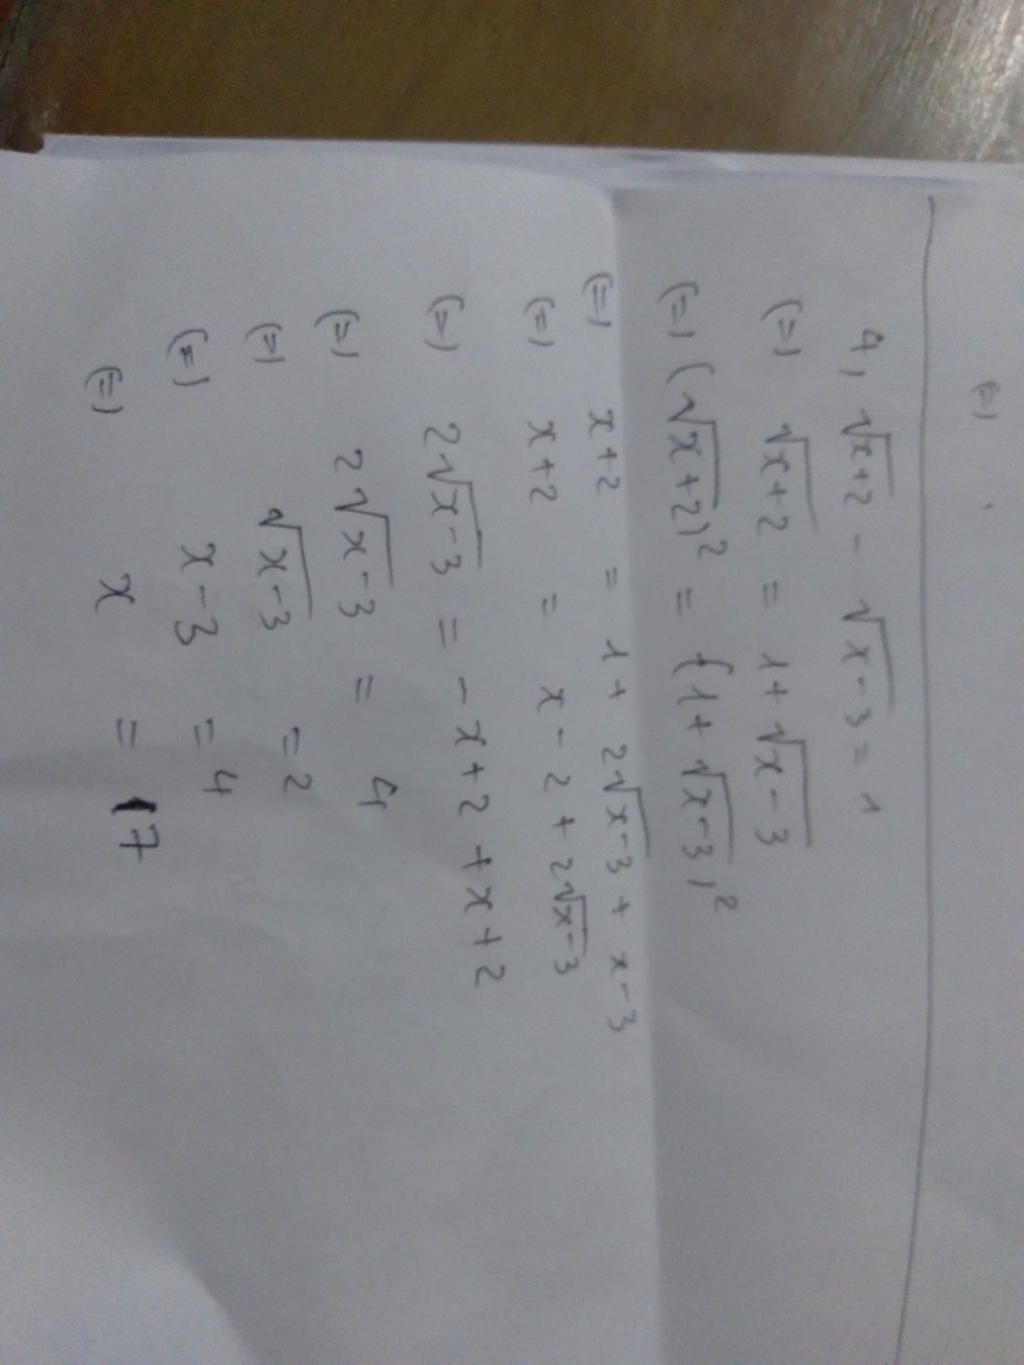 (=)
4, √x+2 - √x-3 = 1
(=) √x+2 = 1+ √x-3
(=) (√x+2)² = (1+ √x-3)²
(=) x+2 = 1+ 2√x-3 + x-3
(=) x+2 = x-2+2√x-3
(=) 2√x-3 = -x+2+x+2
(=) 2√x-3 = 4
(=) √x-3 =2
(=) x-3 = 4
(=) x = 7